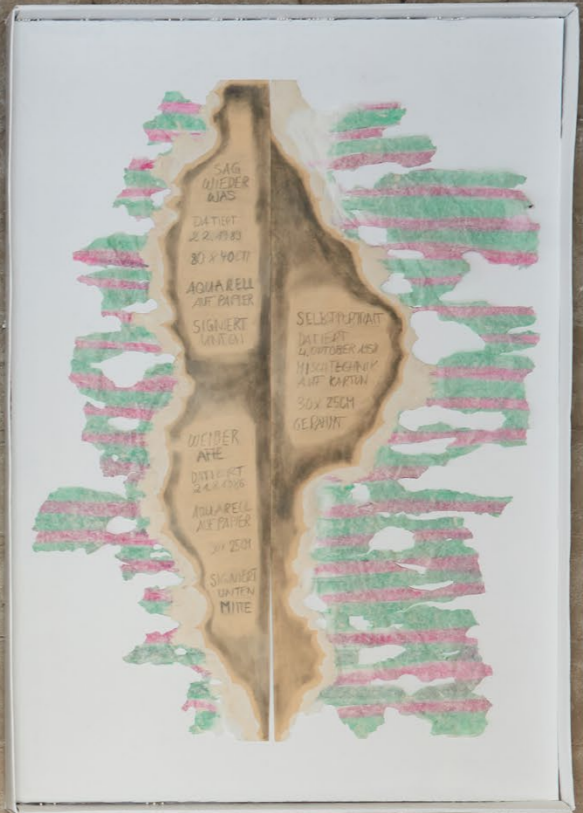 SAG
WIEDER
WAS
DATIERT
2.2.1989
30 x 40CM
AQUARELL
AUF PAPIER
SIGNIERT
UNTEN
WEIBER
AKTE
DATIERT
AQUARELL
AUF PAPIER
25CM
SIGNIERT
UNTEN
MITTE
SELBSTPORTRAIT
DATIERT
MISCHTECHNIK
AUF KARTON
30 x 25CM
GERAHMT